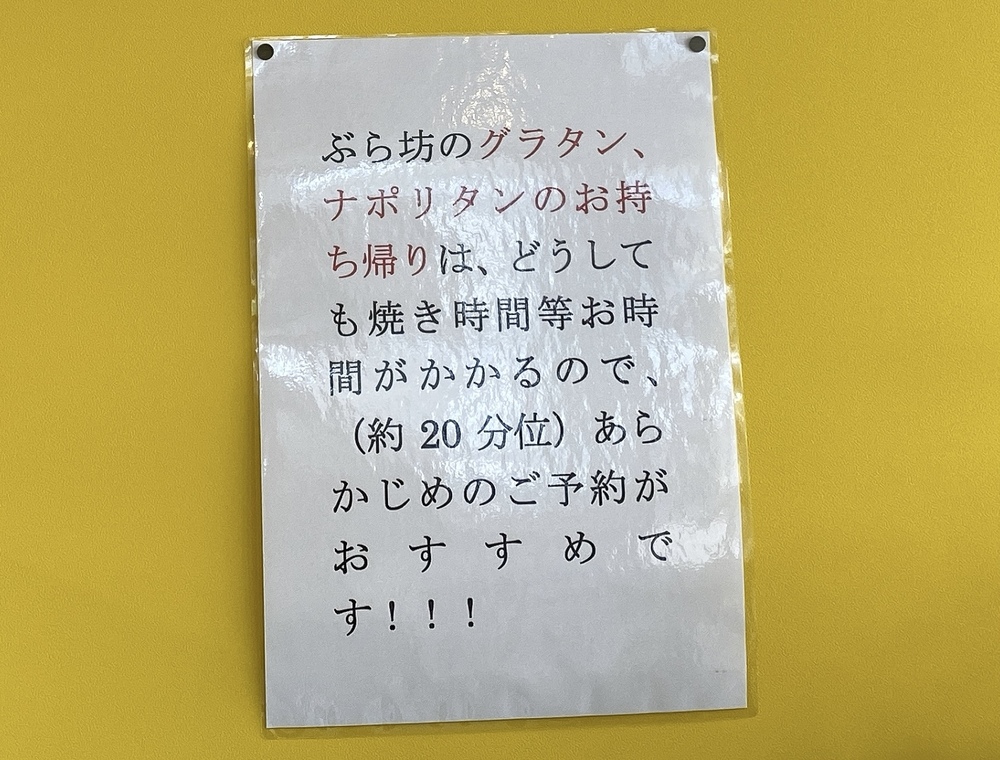 ぶら坊のグラタン、
ナポリタンのお持
ち帰りは、どうして
も焼き時間等お時
間がかかるので、
（約 20 分位）あら
かじめのご予約が
おすすめで
す！！！